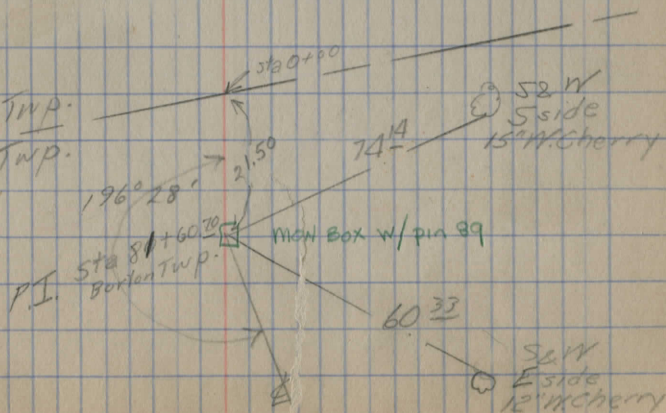 Sta 0+00
Twp.
Twp.
S&W
S side
15" W.Cherry
74 14
21.50
196° 28'
P.I. Sta 81+60.70
Burton Twp.
MON BOX w/ pin 89
60 33
S&W
E side
12" W.Cherry